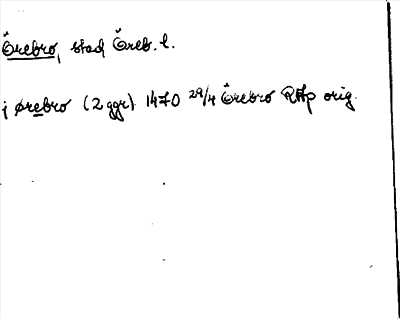 Örebro, stad Öreb. l.
i ørebro (2 ggr) 1470 29/4 Örebro RAp orig.